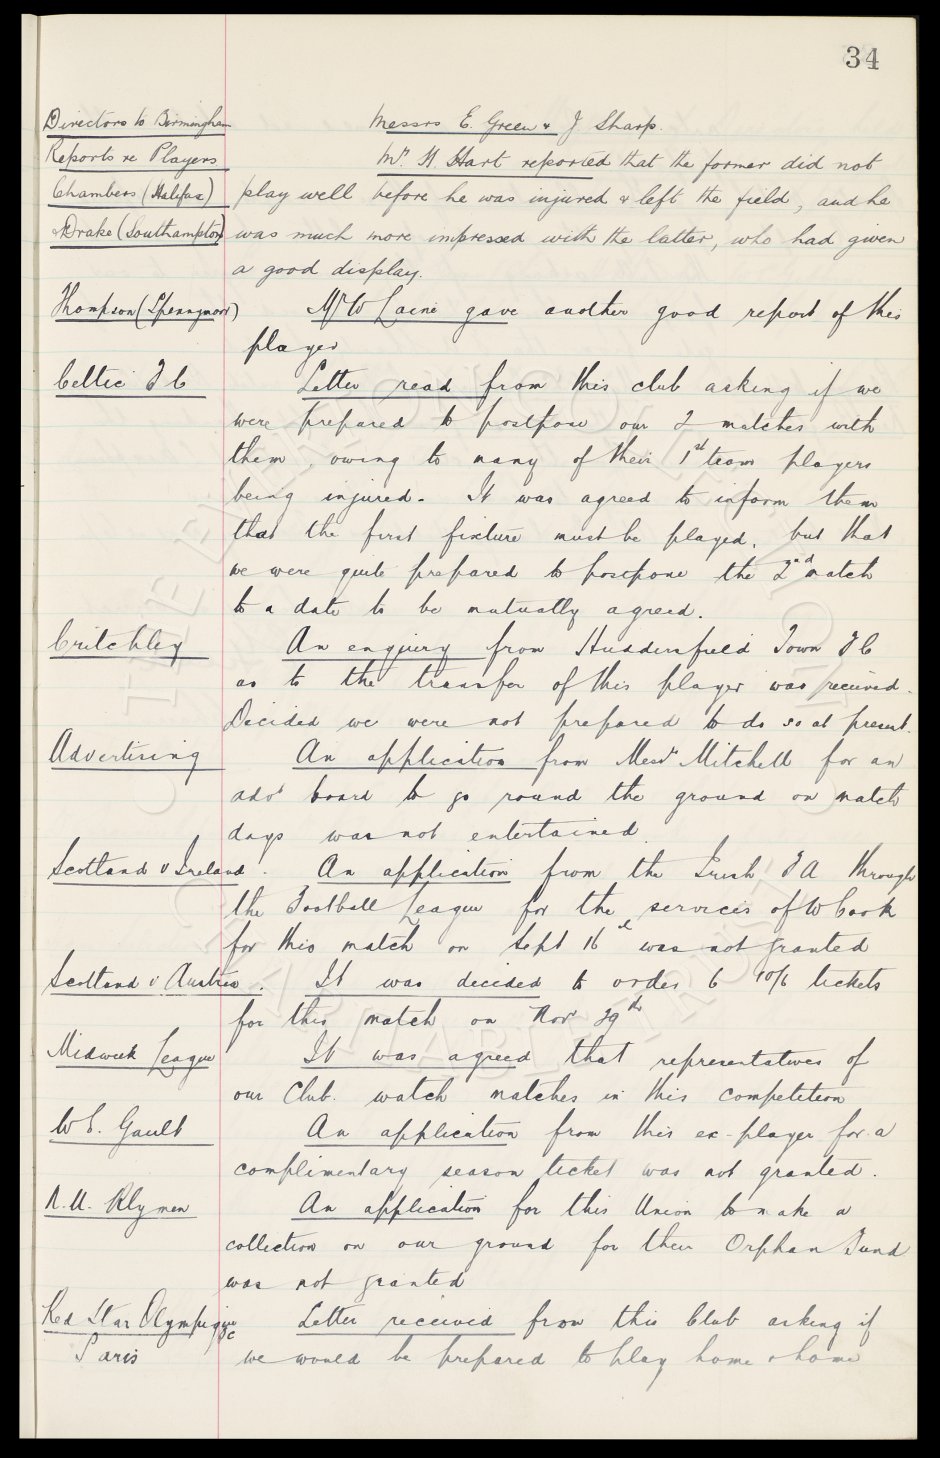 34
Directors to Birmingham Messrs E. Green & J Sharp.
Reports re Players Mr. H. Hart reported that the former did not
Chambers (Halifax) play well before he was injured & left the field, and he
& Drake (Southampton) was much more impressed with the latter, who had given
a good display.
Thompson (Spennymoor) Mr W C Laine gave another good report of this
player
Celtic F C Letter read from this club asking if we
were prepared to postpone our 2 matches with
them, owing to many of their 1st team players
being injured. It was agreed to inform them
that the first fixture must be played, but that
we were quite prepared to postpone the 2nd match
to a date to be mutually agreed.
Critchley An enquiry from Huddersfield Town F C
as to the transfer of this player was received.
Decided we were not prepared to do so at present.
Advertising An application from Messrs Mitchell for an
advt board to go round the ground on match
days was not entertained.
Scotland v Ireland. An application from the Irish F A through
the Football League for the services of W Cook
for this match on Sept 16th was not granted
Scotland v Austria. It was decided to order 6 10/6 tickets
for this match on Nov 29th
Midweek League It was agreed that representatives of
our Club. watch matches in this competition
W E. Gault An application from this ex-player for a
complimentary season ticket was not granted.
N.U. Rlymen An application for this Union to make a
collection on our ground for their Orphan Fund
was not granted
Red Star Olympique FC Letter received from this Club asking if
Paris we would be prepared to play home & home